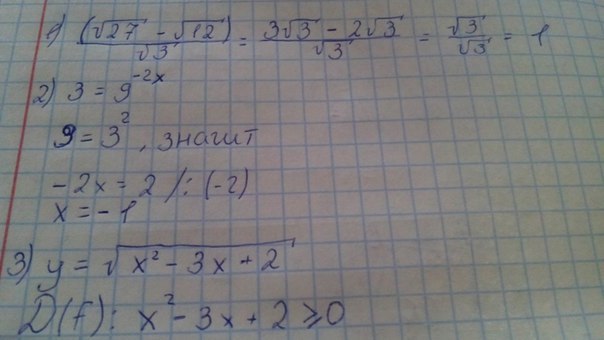 1) (√27 - √12) / √3 = 3√3 - 2√3 / √3 = √3 / √3 = 1
2) 3 = 9^-2x
9 = 3², значит
-2x = 2 /: (-2)
x = -1
3) y = √x² - 3x + 2
D(f): x² - 3x + 2 ≥ 0